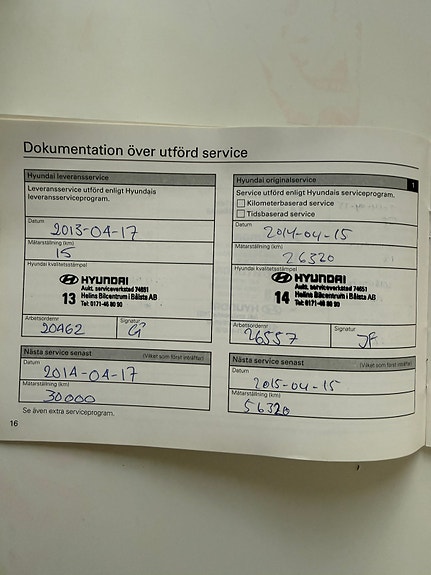 Dokumentation över utförd service
Hyundai leveransservice
Leveransservice utförd enligt Hyundais
leveransserviceprogram.
Datum
2013-04-17
Mätarställning (km)
15
Hyundai kvalitetsstämpel
HYUNDAI
Aukt. serviceverkstad 74651
13 Helins Bilcentrum i Bålsta AB
Tel: 0171-46 80 90
Arbetsordernr Signatur
20462
Nästa service senast (Vilket som först inträffar)
Datum
2014-04-17
Mätarställning (km)
30000
Se även extra serviceprogram.
16
Hyundai originalservice 1
Service utförd enligt Hyundais serviceprogram.
Kilometerbaserad service
Tidsbaserad service
Datum
2014-04-15
Mätarställning (km)
26320
Hyundai kvalitetsstämpel
HYUNDAI
Aukt. serviceverkstad 74651
14 Helins Bilcentrum i Bålsta AB
Tel: 0171-46 80 90
Arbetsordernr Signatur
26557
Nästa service senast (Vilket som först inträffar)
Datum
2015-04-15
Mätarställning (km)
56320